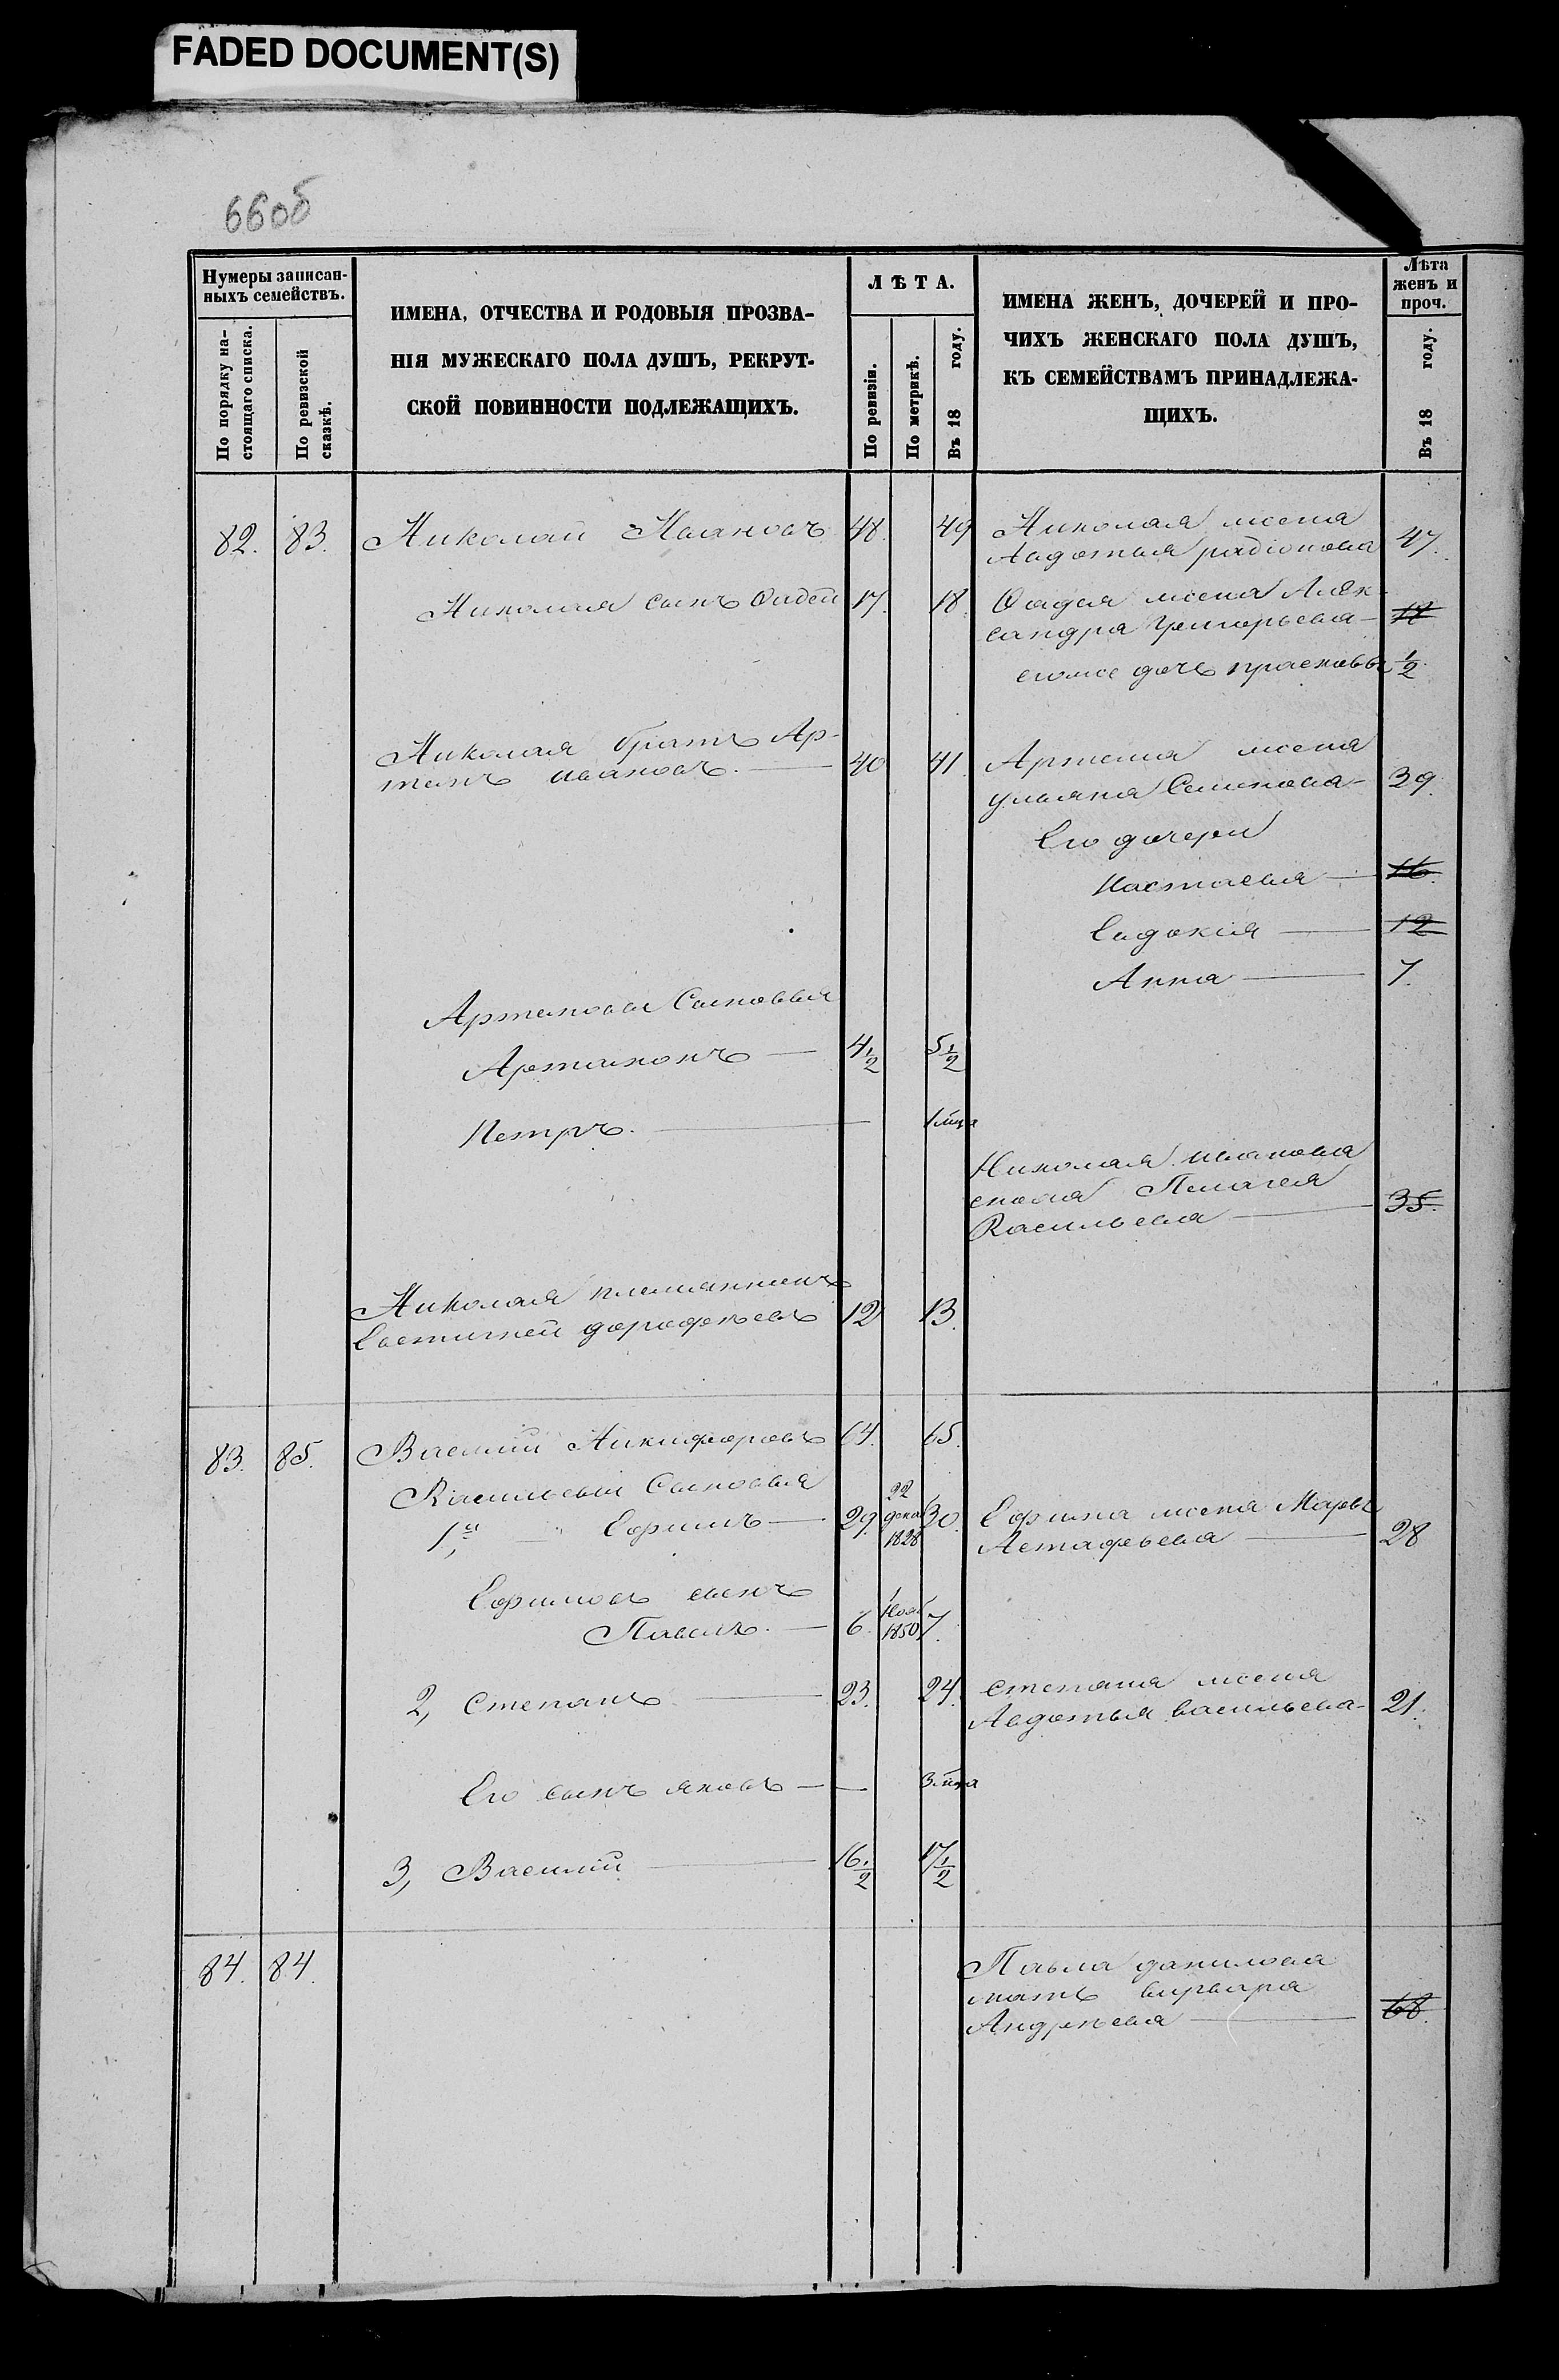 FADED DOCUMENT(S)
66об
Нумеры записан-
ныхъ семействъ.
По порядку на-
стоящаго списка.
По ревизской
сказкѣ.
ИМЕНА, ОТЧЕСТВА И РОДОВЫЯ ПРОЗВА-
НІЯ МУЖЕСКАГО ПОЛА ДУШЪ, РЕКРУТ-
СКОЙ ПОВИННОСТИ ПОДЛЕЖАЩИХЪ.
ЛѢТА.
По ревизіи.
По метрикѣ.
Въ 18 году.
ИМЕНА ЖЕНЪ, ДОЧЕРЕЙ И ПРО-
ЧИХЪ ЖЕНСКАГО ПОЛА ДУШЪ,
КЪ СЕМЕЙСТВАМЪ ПРИНАДЛЕЖА-
ЩИХЪ.
Лѣта
женъ и
проч.
Въ 18 году.
82. 83. Николай Ивановъ 48. 49 Николая жена
Авдотья радіонова 47.
Николая сынъ Фадей 17. 18. Фадея жена Алек-
сандра Григорьева —
егоже дочь прасковья 1/2
Николая братъ Ар-
темъ ивановъ. — 40 41. Артема жена
ульяна Семенова — 39.
Его дочери
Настасья — 16.
Евдокія — 12
Анна — 7.
Артемовы Сыновья
Артамонъ — 4 1/2 5 1/2
Петръ. — 1 мца
Николая иванова
Пелагея
Васильева — 35.
Николая племянникъ
Евстигней дорофѣевъ 12 13.
83. 85. Василий Никифоровъ 64. 65.
Васильевы Сыновья
1й, Ефимъ — 29. 22 дека 1828 30. Ефима жена Марья
Астафьева — 28
Ефимовъ сынъ
Павелъ. — 6. 1 Нояб 1850 7.
2, Степанъ — 23. 24. степана жена
Авдотья васильева — 21.
Его сынъ яковъ — 3 мца
3, Василий — 16 1/2 17 1/2
84. 84. Павла данилова
мать варвара
Андреева — 68.